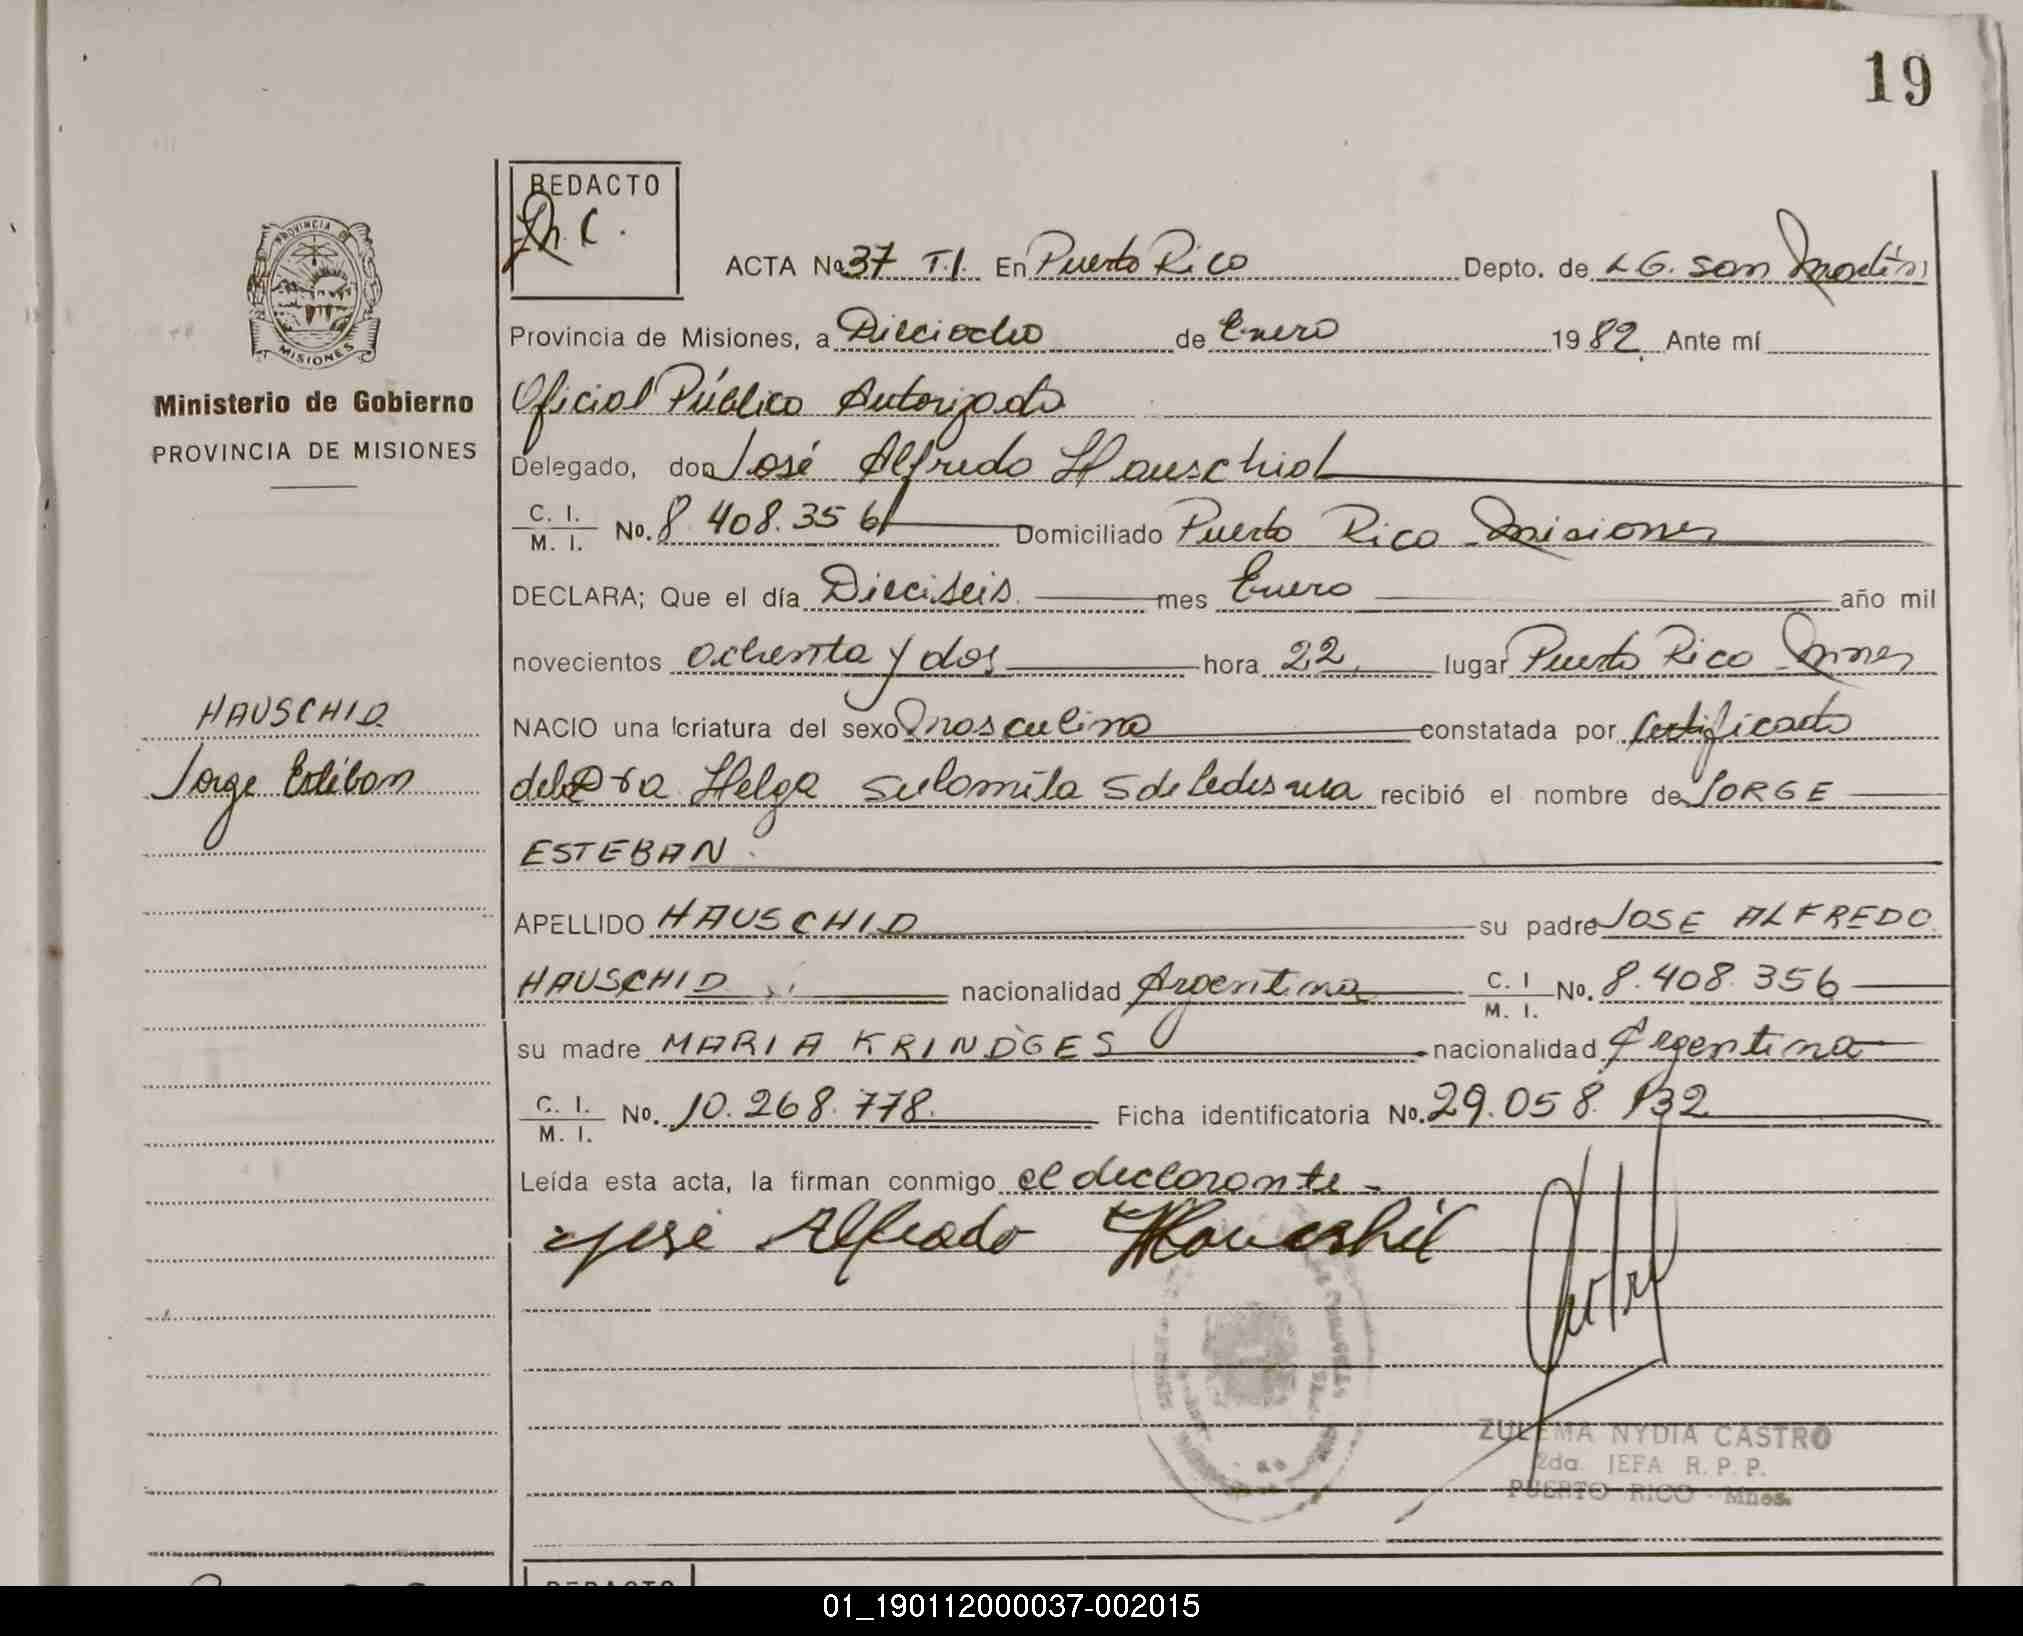 19
REDACTO
PROVINCIA DE
MISIONES
Ministerio de Gobierno
PROVINCIA DE MISIONES
ACTA No 37 T.I. En Puerto Rico Depto. de L G. San Martín
Provincia de Misiones, a Dieciocho de Enero 1982. Ante mí
Oficial Público Autorizado
Delegado, don José Alfredo Hauschid
C. I. / M. I. No. 8.408.356 Domiciliado Puerto Rico Misiones
DECLARA; Que el día Dieciseis mes Enero año mil
novecientos ochenta y dos hora 22, lugar Puerto Rico Mnes
HAUSCHID
NACIO una criatura del sexo masculino constatada por Certificado
Jorge Estéban
de la Dra Helga Sulamita S de Ledesma recibió el nombre de JORGE
ESTEBAN
APELLIDO HAUSCHID su padre JOSE ALFREDO
HAUSCHID nacionalidad Argentina C. I / M. I. No. 8.408.356
su madre MARIA KRINDGES nacionalidad Argentina
C. I. / M. I. No. 10.268.778. Ficha identificatoria No. 29.058.132
Leída esta acta, la firman conmigo el declarante -
José Alfredo Hauschid
ZULEMA NYDIA CASTRO
2da. JEFA R. P. P.
PUERTO RICO - Mnes.
REDACTO
01_190112000037-002015